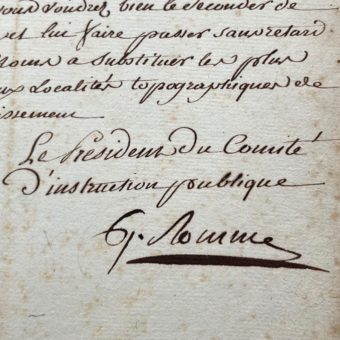 vous voudrez bien le seconder de
et lui faire passer sans retard
noms a substituer les plus
aux Localités topographiques de
issement
Le Président du Comité
D'instruction publique
G. Romme